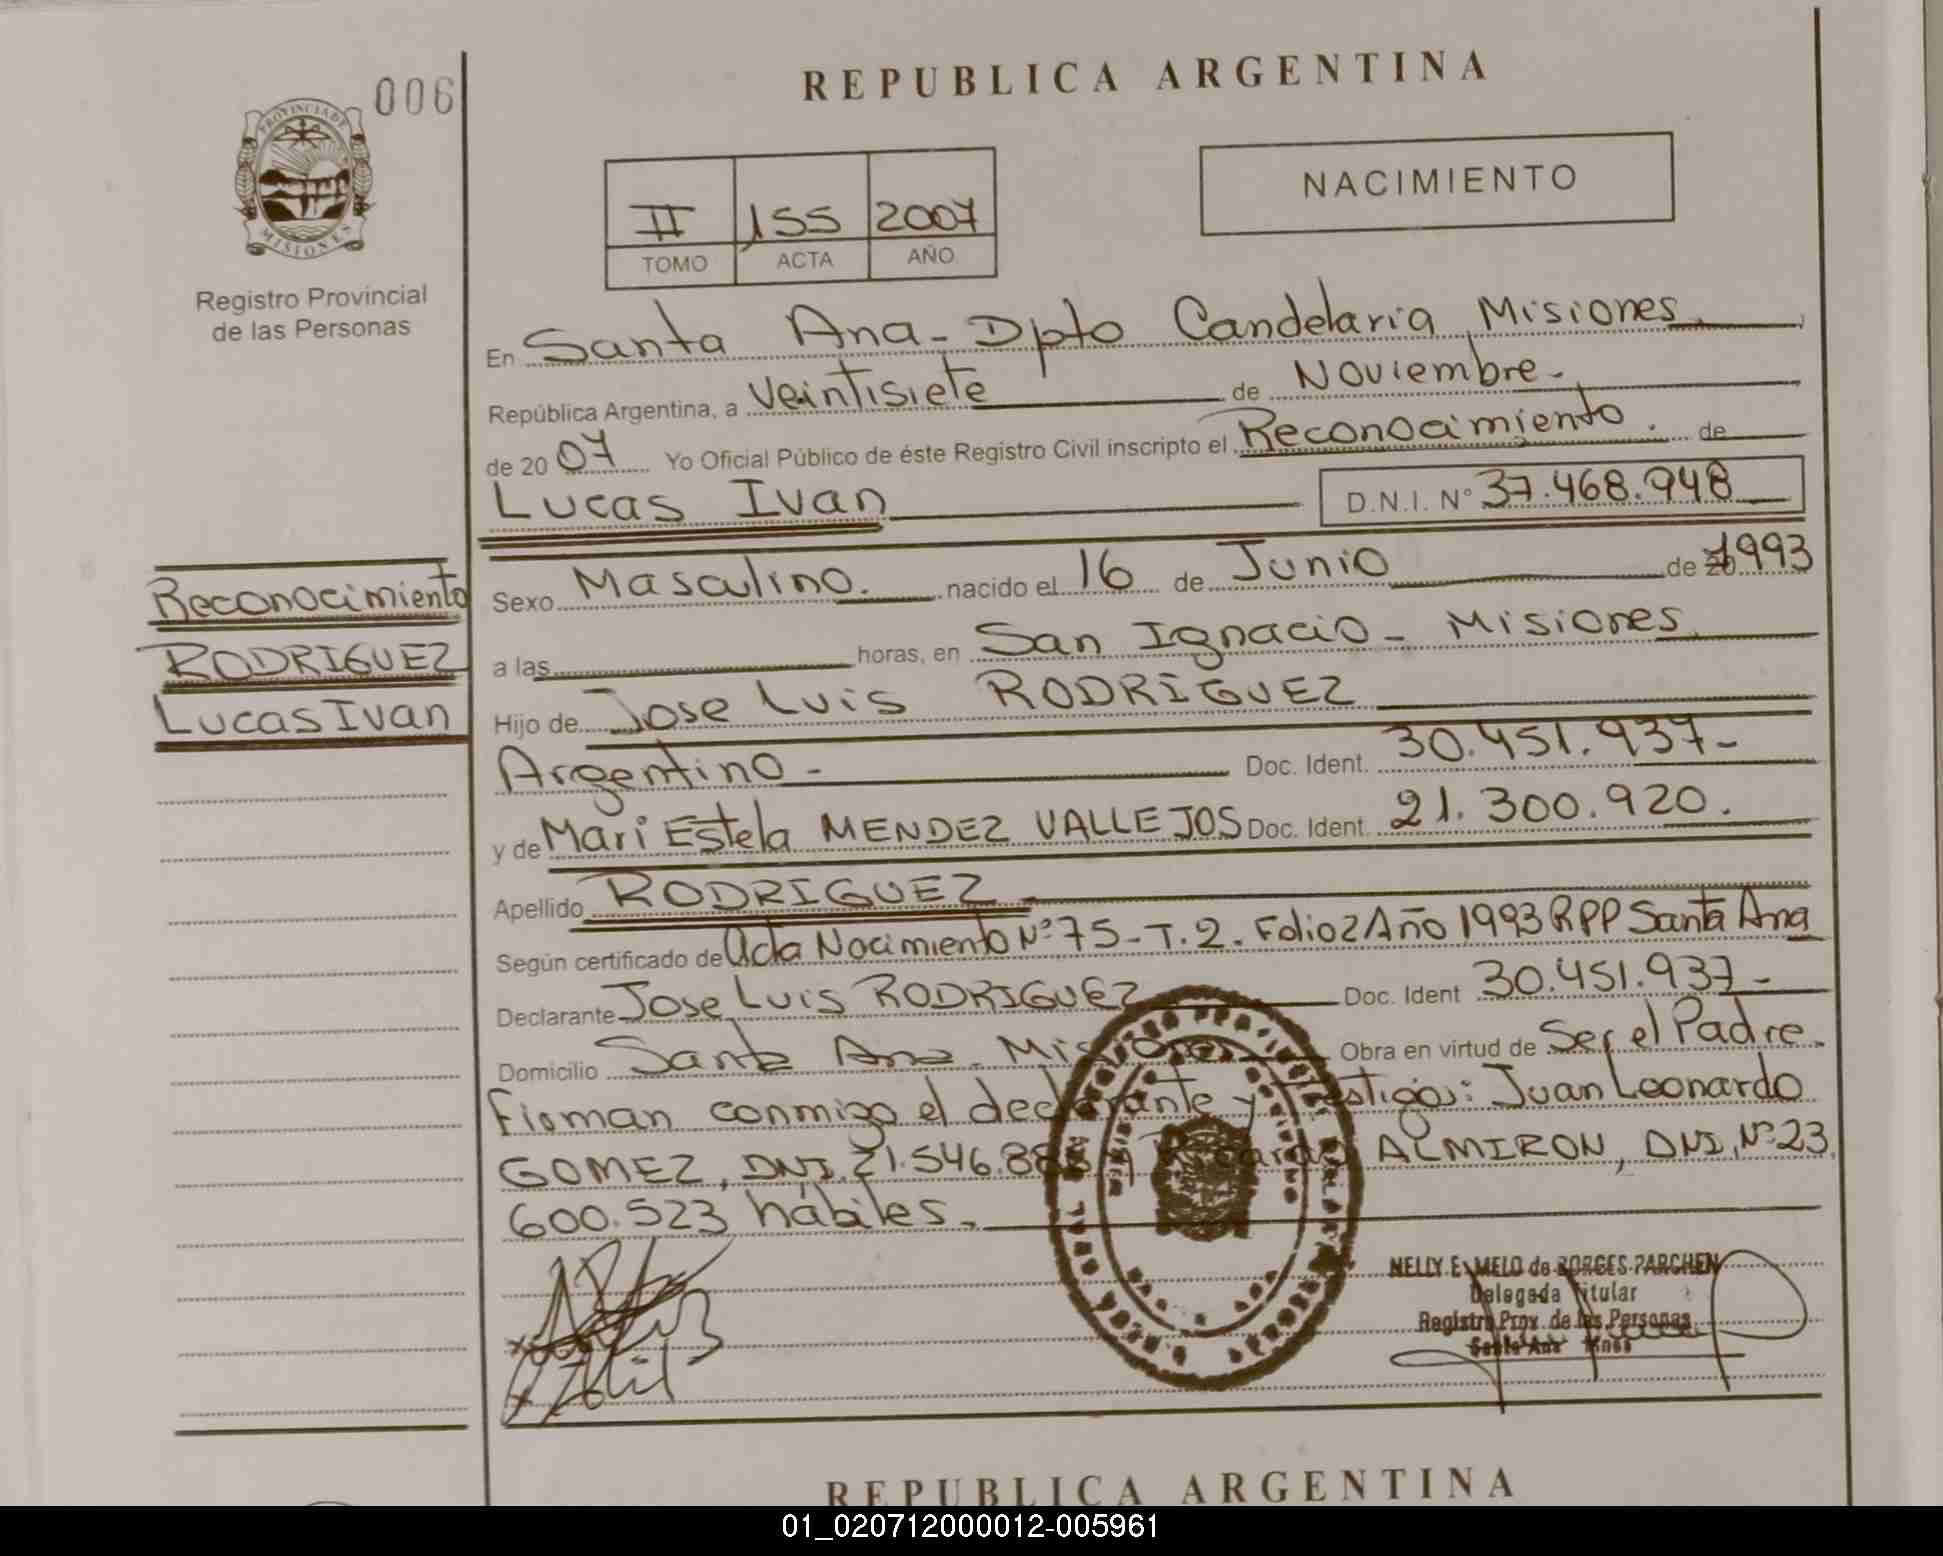 006
PROVINCIA DE
MISIONES
Registro Provincial
de las Personas
REPUBLICA ARGENTINA
NACIMIENTO
II 155 2007
TOMO ACTA AÑO
En Santa Ana - Dpto Candelaria Misiones
República Argentina, a veintisiete de Noviembre.
de 20 07 Yo Oficial Público de éste Registro Civil inscripto el Reconocimiento. de
Lucas Ivan D.N.I. N° 37.468.948
Reconocimiento
RODRIGUEZ
Lucas Ivan
Sexo Masculino. nacido el 16 de Junio de 1993
a las horas, en San Ignacio - Misiones
Hijo de Jose Luis RODRIGUEZ
Argentino - Doc. Ident. 30.451.937-
y de Mari Estela MENDEZ VALLEJOS Doc. Ident. 21.300.920.
Apellido RODRIGUEZ
Según certificado de Acta Nacimiento N° 75 - T. 2. Folio 2 Año 1993 RPP Santa Ana
Declarante Jose Luis RODRIGUEZ Doc. Ident 30.451.937-
Domicilio Santa Ana Misiones Obra en virtud de Ser el Padre.
Firman conmigo el declarante y Testigos: Juan Leonardo
GOMEZ, DNI. 21.546.88 y Ricardo ALMIRON, DNI, N° 23.
600.523 hábiles.
NELLY E. MELO de BORGES PARCHEN
Delegada Titular
Registro Prov. de las Personas
Santa Ana Mnes
REPUBLICA ARGENTINA
01_020712000012-005961